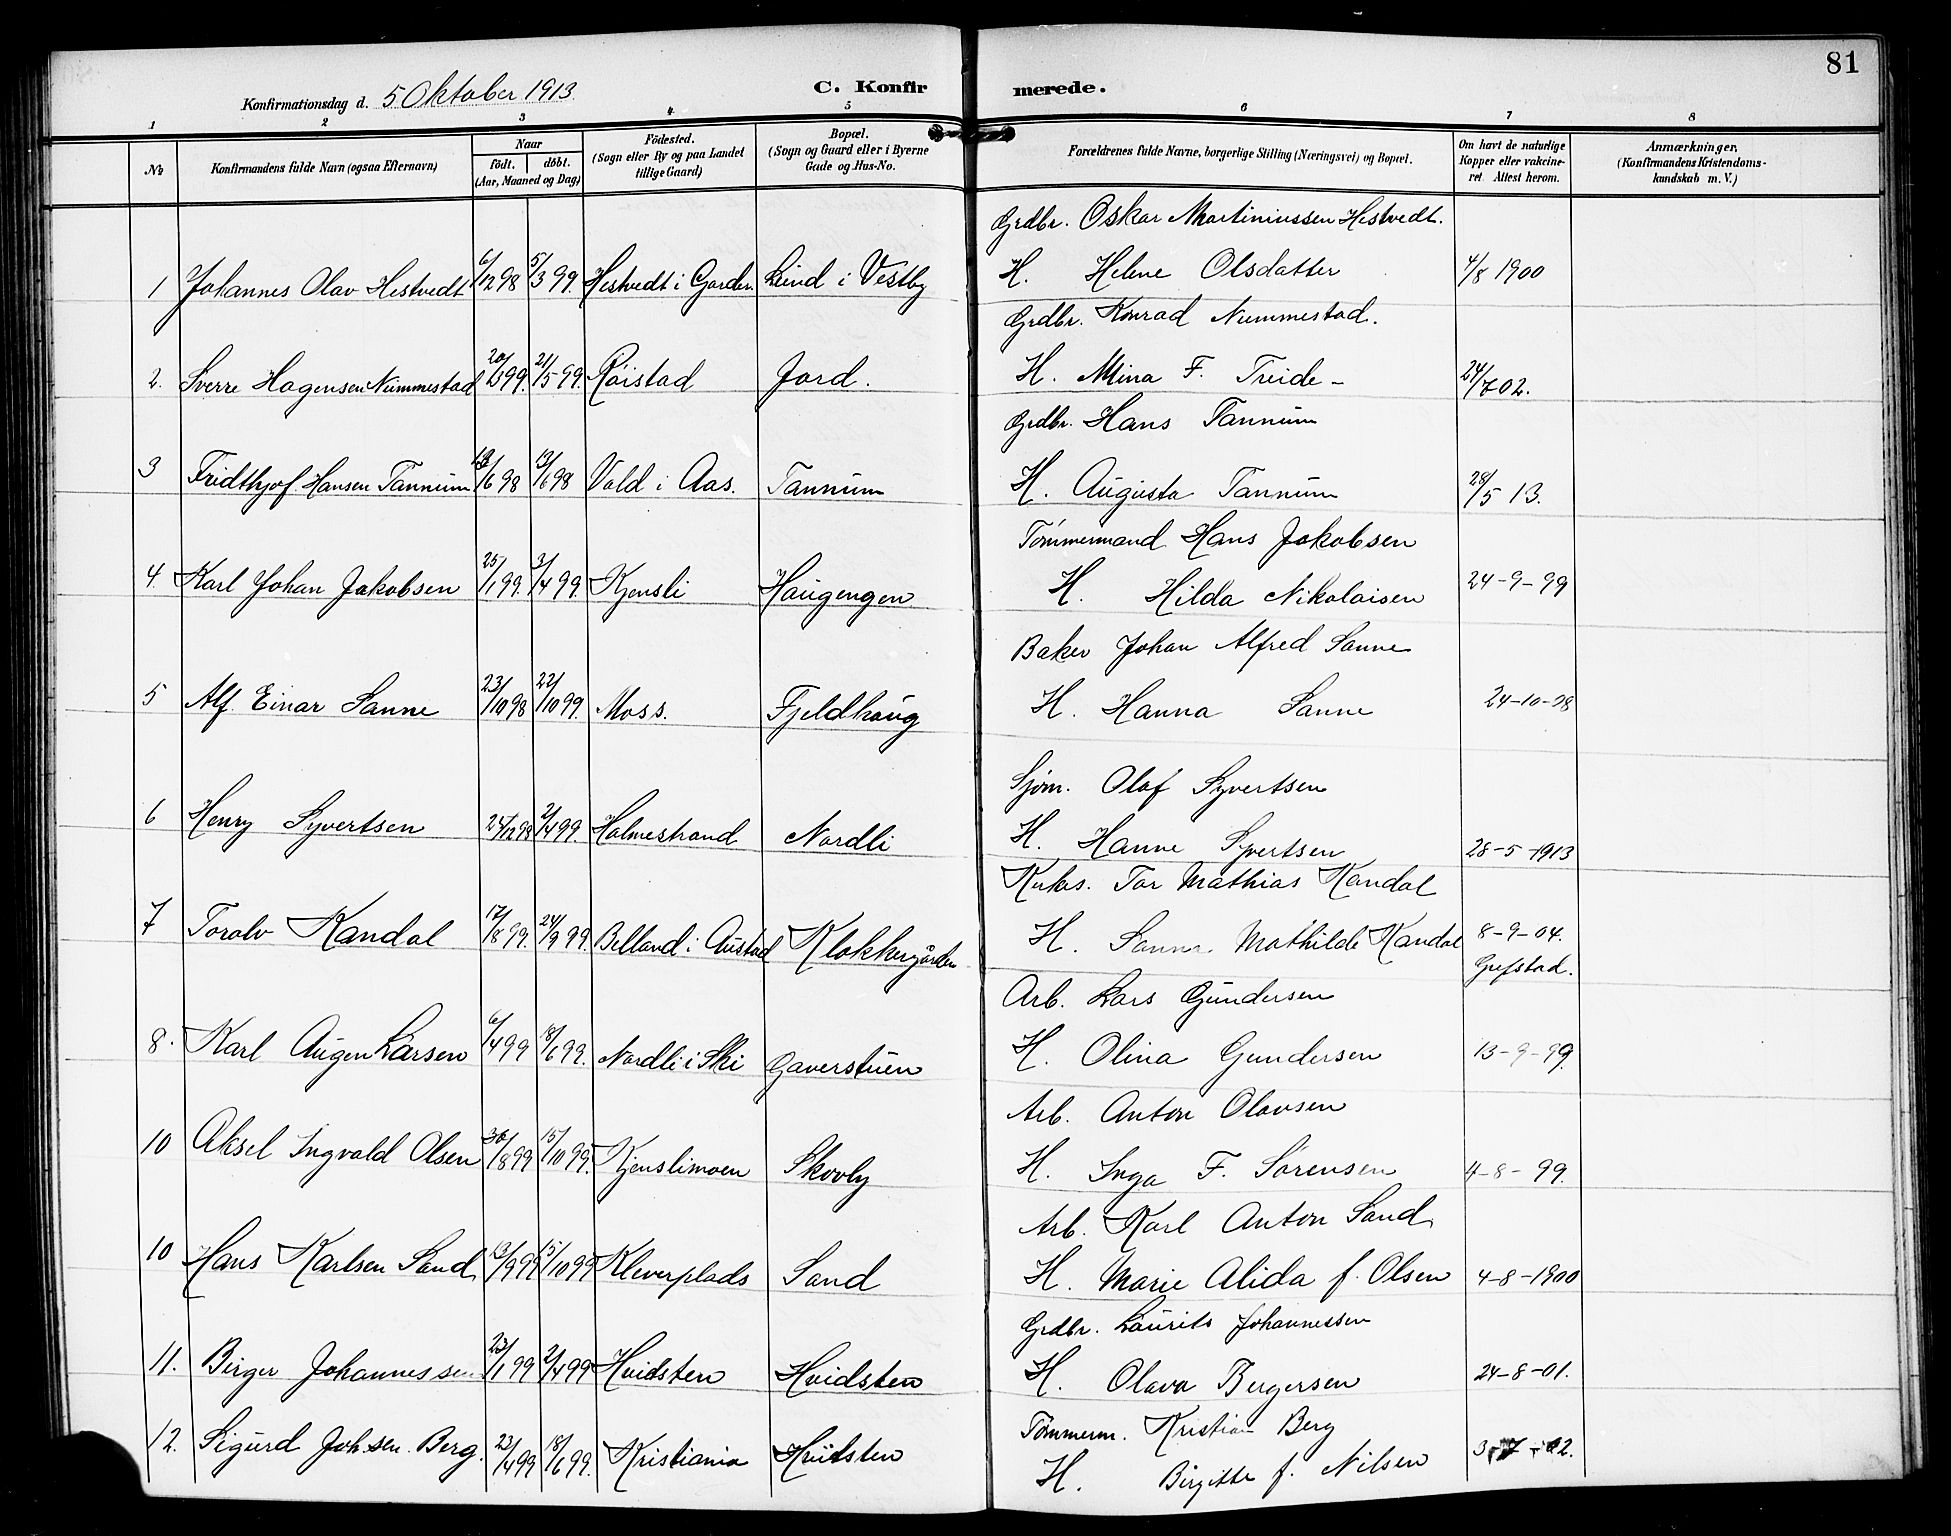 81
Konfirmationsdag d. 5 Oktober 1913.
C. Konfirmerede.
1 2 3 4 5 6 7 8
No
Konfirmandens fulde Navn (ogsaa Efternavn)
Naar
födt. döbt.
(Aar, Maaned og Dag)
Födested.
(Sogn eller By og paa Landet
tillige Gaard)
Bopæl.
(Sogn og Gaard eller i Byerne
Gade og Hus-No.
Forældrenes fulde Navne, borgerlige Stilling (Næringsvei) og Bopæl.
Om havt de naturlige
Kopper eller vakcine-
ret Attest herom.
Anmærkninger.
(Konfirmandens Kristendoms-
kundskab m. V.)
Grdbr. Oskar Martiniussen Hestvedt.
1 Johannes Olav Hestvedt 6/12 98 5/3 99. Hestvedt i Garder. Lund i Vestby H. Helene Olsdatter 4/8 1900
Grdbr. Konrad Nummestad.
2. Sverre Hagensen Nummestad 20/3 99. 21/5 99. Röistad Jord. H. Mina F. Treide 24/7 02.
Grdbr. Hans Tannum
3 Fridthjof Hansen Tannum /6 98 13/6 98 Vold i Aas. Tannum H. Augusta Tannum 28/5 13.
Tömmermand Hans Jakobsen
4. Karl Johan Jakobsen 25/1 99. 3/4 99. Kjensli Haugengen H. Hilda Nikolaisen 24-9-99
Baker Johan Alfred Sanne
5 Alf. Einar Sanne 23/10 98 22/10 99. Moss. Fjeldhaug H. Hanna Sanne 24-10-98
Sjöm. Olaf Syvertsen
6 Henry Syvertsen 24/12 98 2/4 99. Holmestrand Nordli H. Hanne Syvertsen 28-5-1913
Tor Mathias Kandal
7 Toralv Kandal 17/8 99. 24/9 99. Belland i Austad Klokkergården H. Sanna Mathilde Kandal 8-9-04.
Grefstad.
Arb. Lars Gundersen
8. Karl Augen Larsen 6/4 99 18/6 99. Nordli i Ski Gaverstuen H. Olina Gundersen 13-9-99.
Arb. Anton Olavsen
10 Aksel Ingvald Olsen 30/8 99 15/10 99. Kjenslimoen Skovly H. Inga F. Sörensen 4-8-99.
Arb. Karl Anton Sand
10 Hans Karlsen Sand 13/9 99 15/10 99 Kleverplads Sand H. Marie Alida f. Olsen 4-8-1900
Grdbr. Laurits Johannessen
11. Birger Johannessen 23/1 99 2/4 99 Hvidsten Hvidsten H. Olava Bergersen 24-8-01.
Tömmerm. Kristian Berg
12. Sigurd Johsen. Berg. 23/4 99 18/6 99. Kristiania Hvitsten H. Birgitte f. Nilsen 3-7-02.